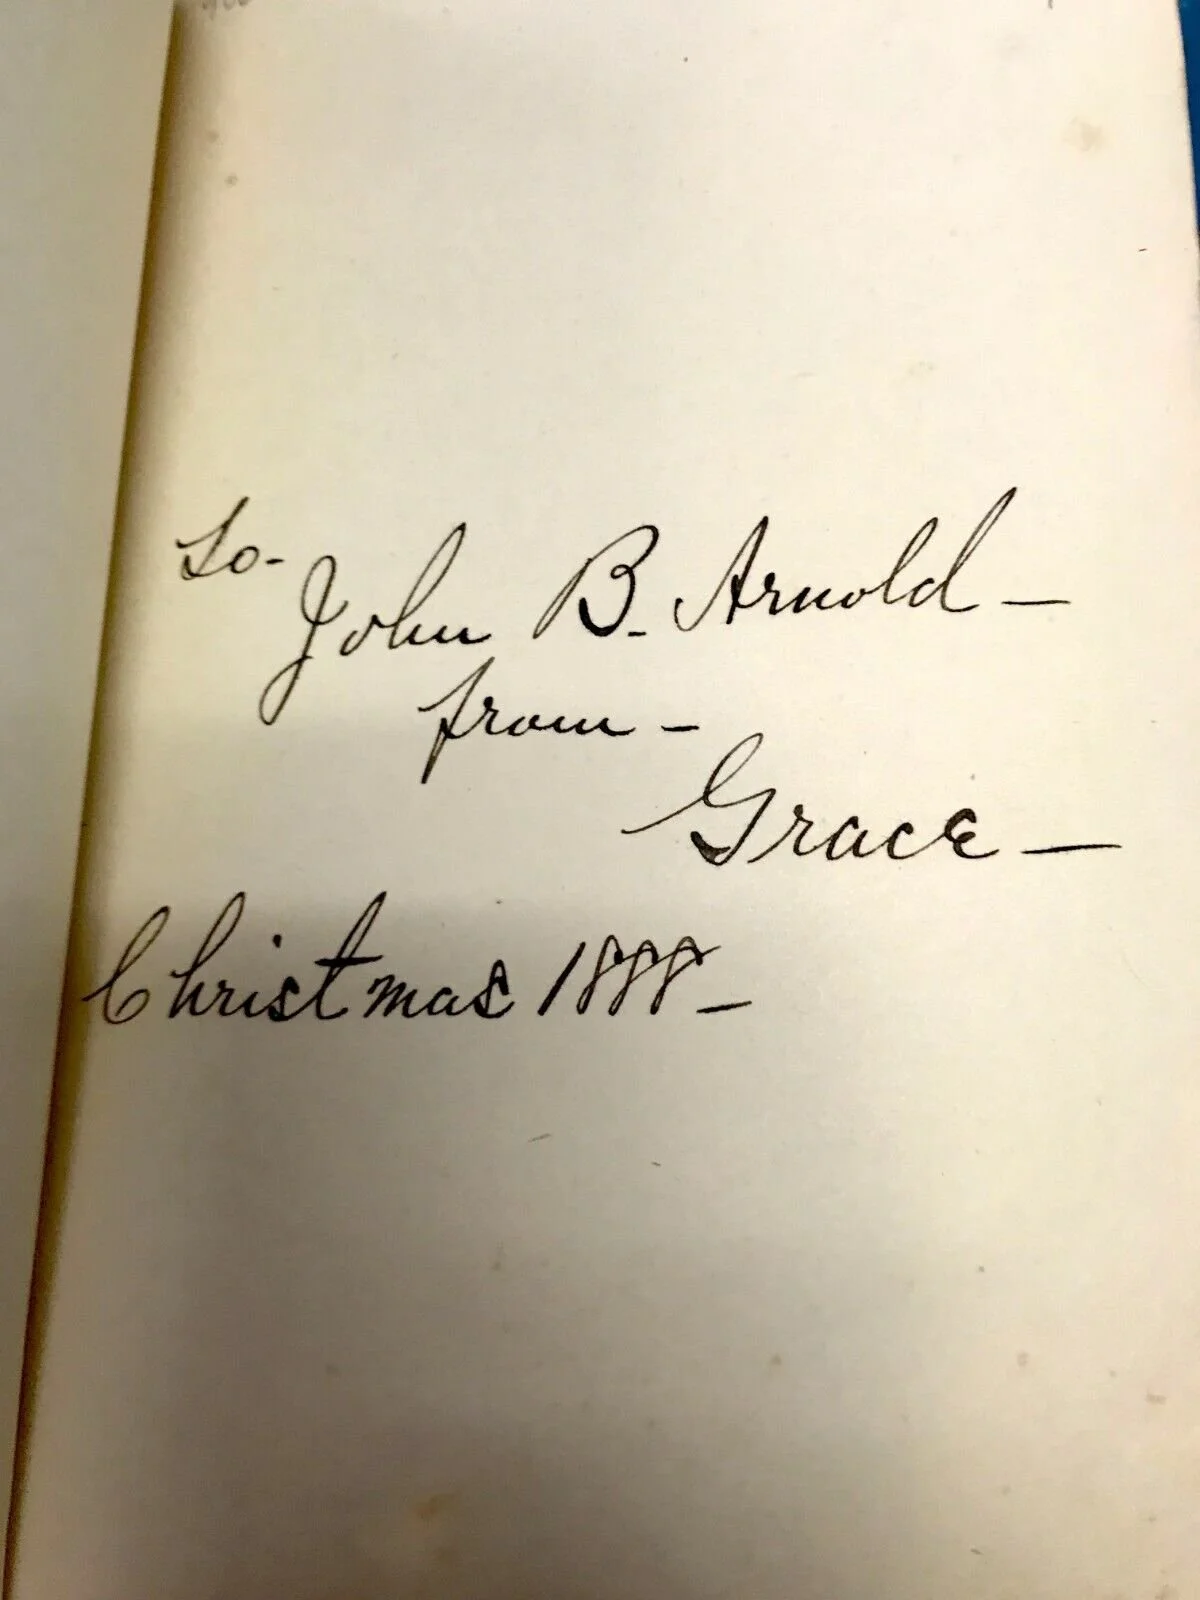 to-
John B. Arnold —
from —
Grace —
Christmas 1888 —